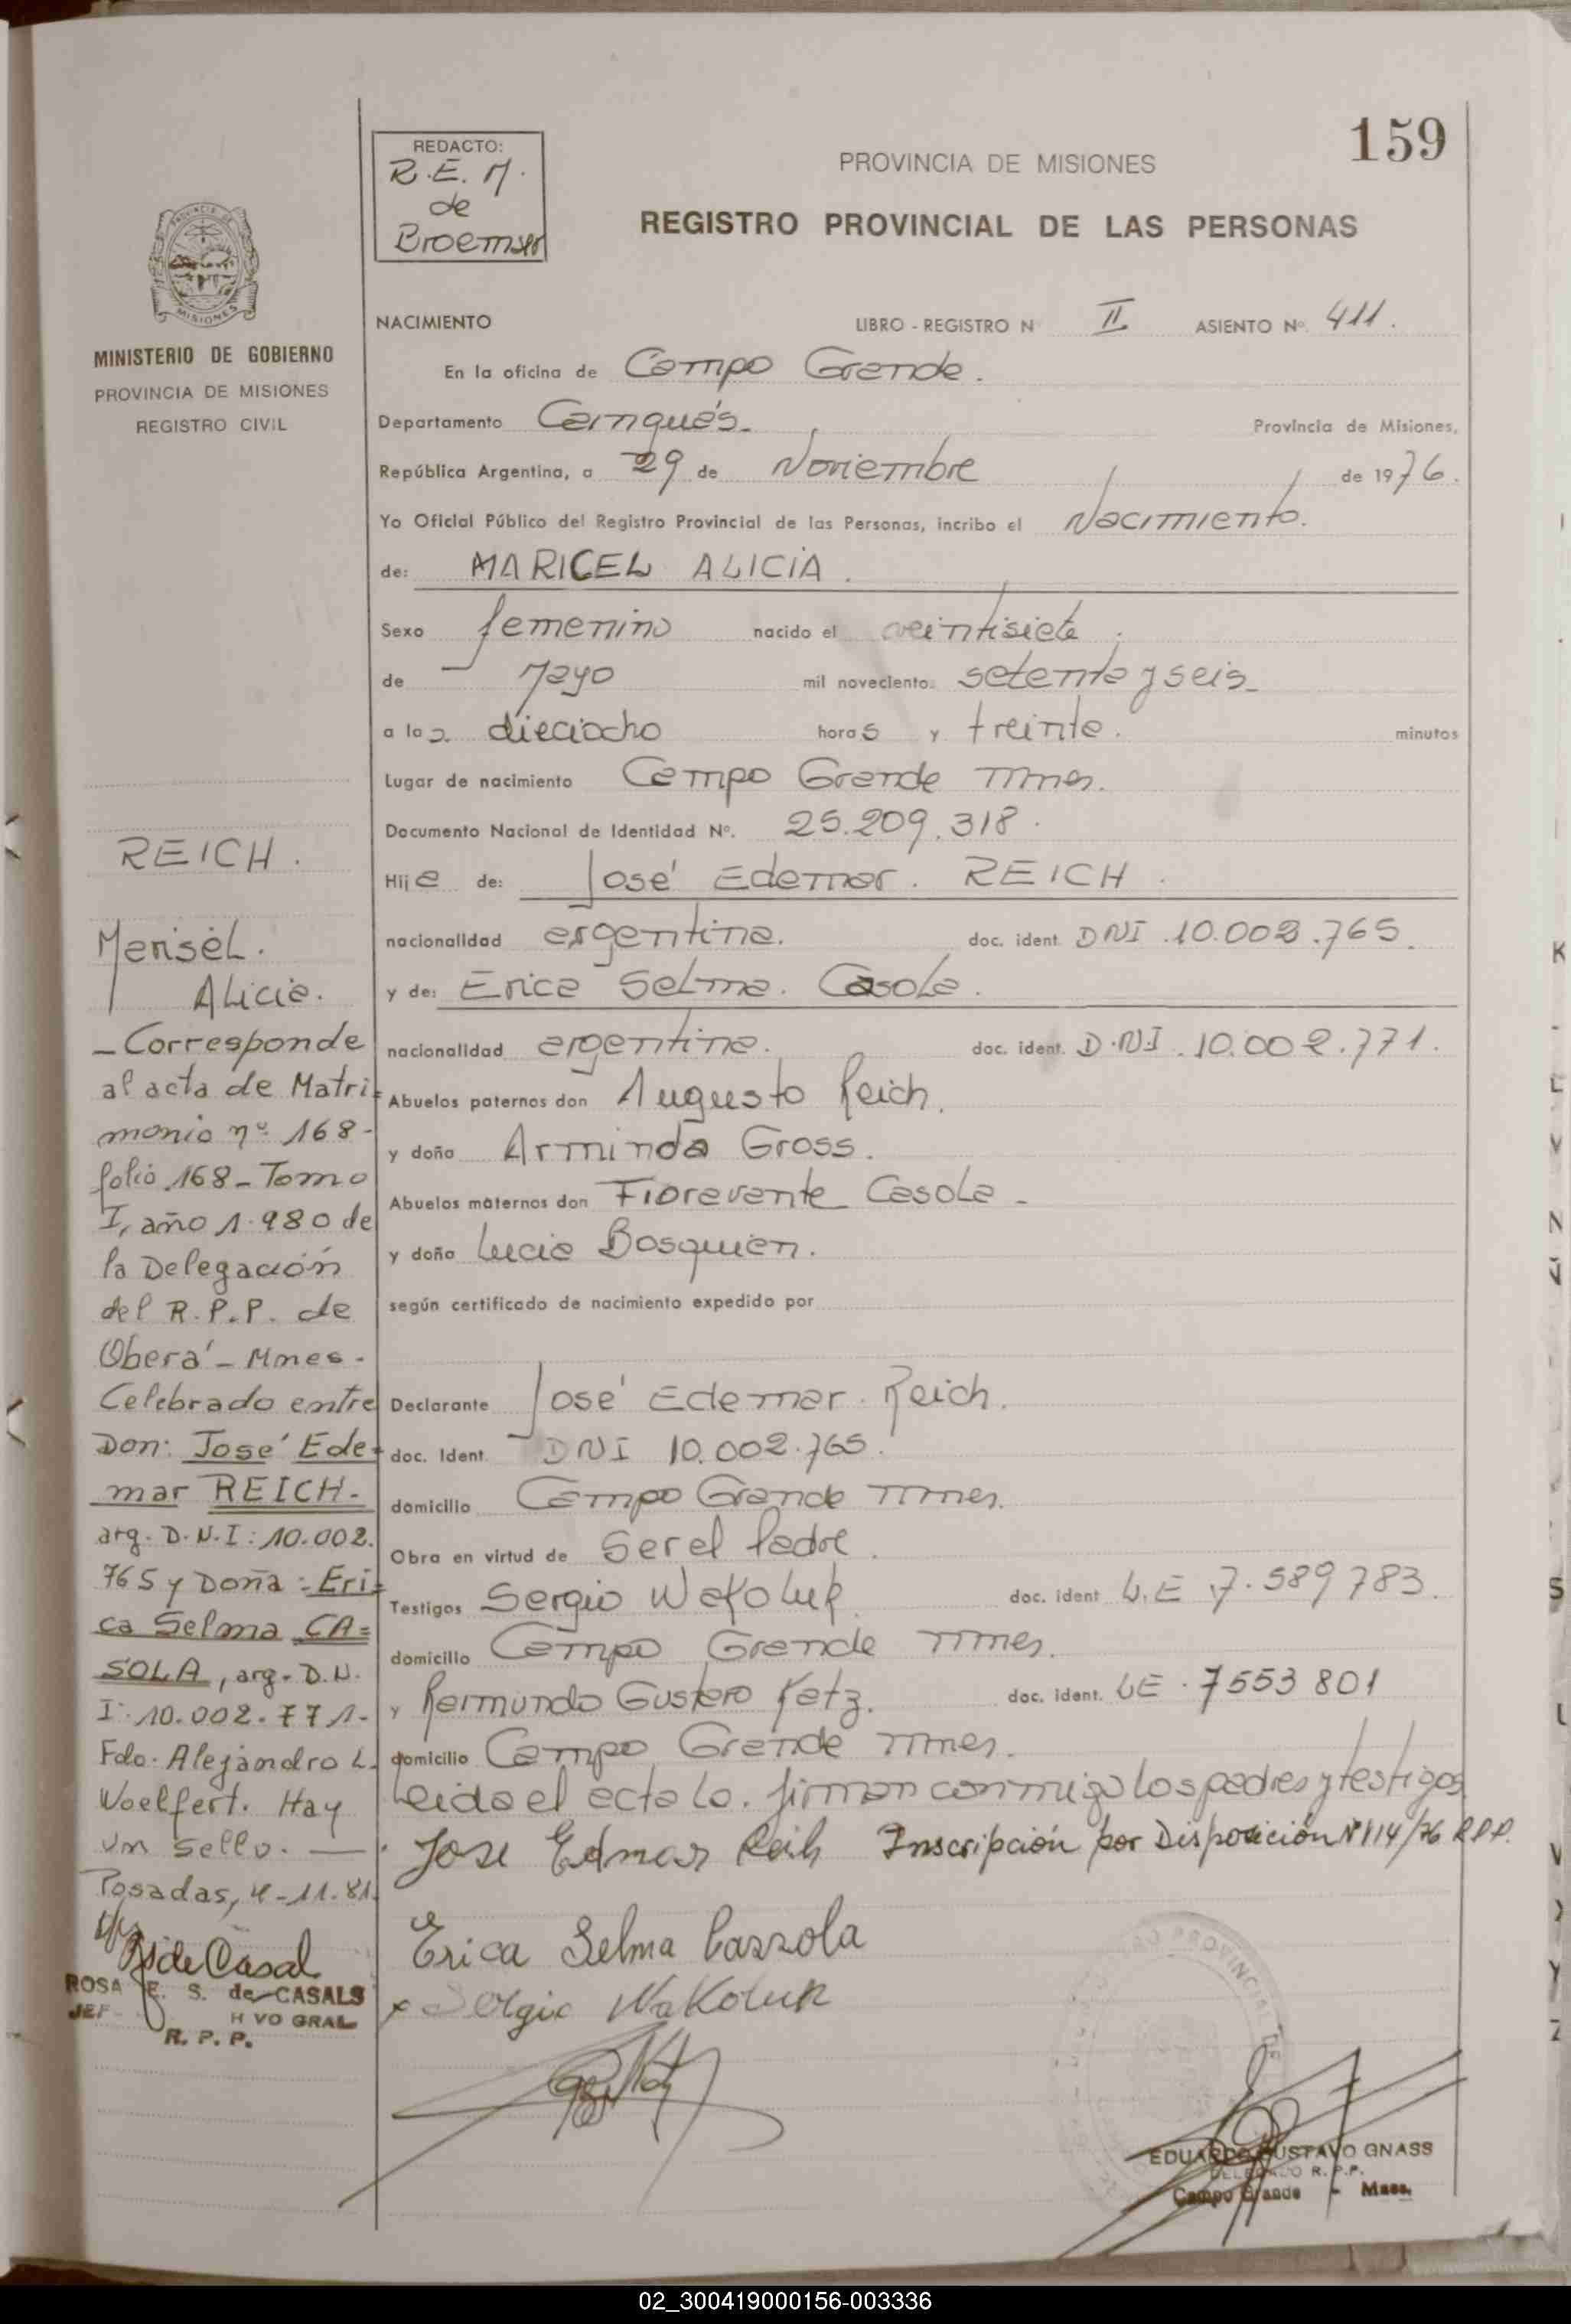 159
REDACTO:
R.E.M.
de
Broemser
PROVINCIA DE MISIONES
REGISTRO PROVINCIAL DE LAS PERSONAS
MINISTERIO DE GOBIERNO
PROVINCIA DE MISIONES
REGISTRO CIVIL
NACIMIENTO LIBRO - REGISTRO N II ASIENTO Nº. 411.
En la oficina de Campo Grande.
Departamento Cainguás. Provincia de Misiones,
República Argentina, a 29 de Noviembre de 1976.
Yo Oficial Público del Registro Provincial de las Personas, incribo el Nacimiento.
de: MARICEL ALICIA.
Sexo femenino nacido el veintisiete
de Mayo mil noveciento. setenta y seis
a las dieciocho horas y treinta. minutos
Lugar de nacimiento Campo Grande Mnes.
Documento Nacional de Identidad Nº. 25.209.318.
Hija de: José Edemar. REICH.
nacionalidad argentina. doc. ident. DNI 10.002.765.
y de: Erica Selma. Casola.
nacionalidad argentina. doc. ident. D.N.I. 10.002.771.
Abuelos paternos don Augusto Reich.
y doña Arminda Gross.
Abuelos maternos don Fioravante Casola -
y doña Lucia Bosquien.
según certificado de nacimiento expedido por
Declarante José Edemar. Reich.
doc. Ident. DNI 10.002.765.
domicilio Campo Grande Mnes.
Obra en virtud de Ser el Padre.
Testigos Sergio Wakoluk doc. ident L.E 7.589783.
domicilio Campo Grande Mnes.
y Raimundo Gustavo Katz. doc. ident. LE. 7553801
domicilio Campo Grande Mnes.
Leida el acta la. firman conmigo los padres y testigos
Jose Edmar Reih Inscripción por Disposición Nº 114/76 R.P.P.
Erica Selma Cazzola
x Sergio Wakoluk
EDUARDO GUSTAVO GNASS
DELEGADO R.P.P.
Campo Grande - Mnes.
REICH.
Marisel.
Alicia.
- Corresponde
al acta de Matri=
monio nº 168-
folio 168 - Tomo
I, año 1.980 de
la Delegación
del R.P.P. de
Oberá - Mnes -
Celebrado entre
Don: José Ede=
mar REICH -
arg. D.N.I: 10.002.
765 y Doña: Eri=
ca Selma CA=
SOLA, arg. D.N.
I: 10.002.771-
Fdo. Alejandro L.
Woelfert. Hay
un sello. —
Posadas, 4-11-81.
ROSA E. S. de CASALS
R. P. P.
02_300419000156-003336